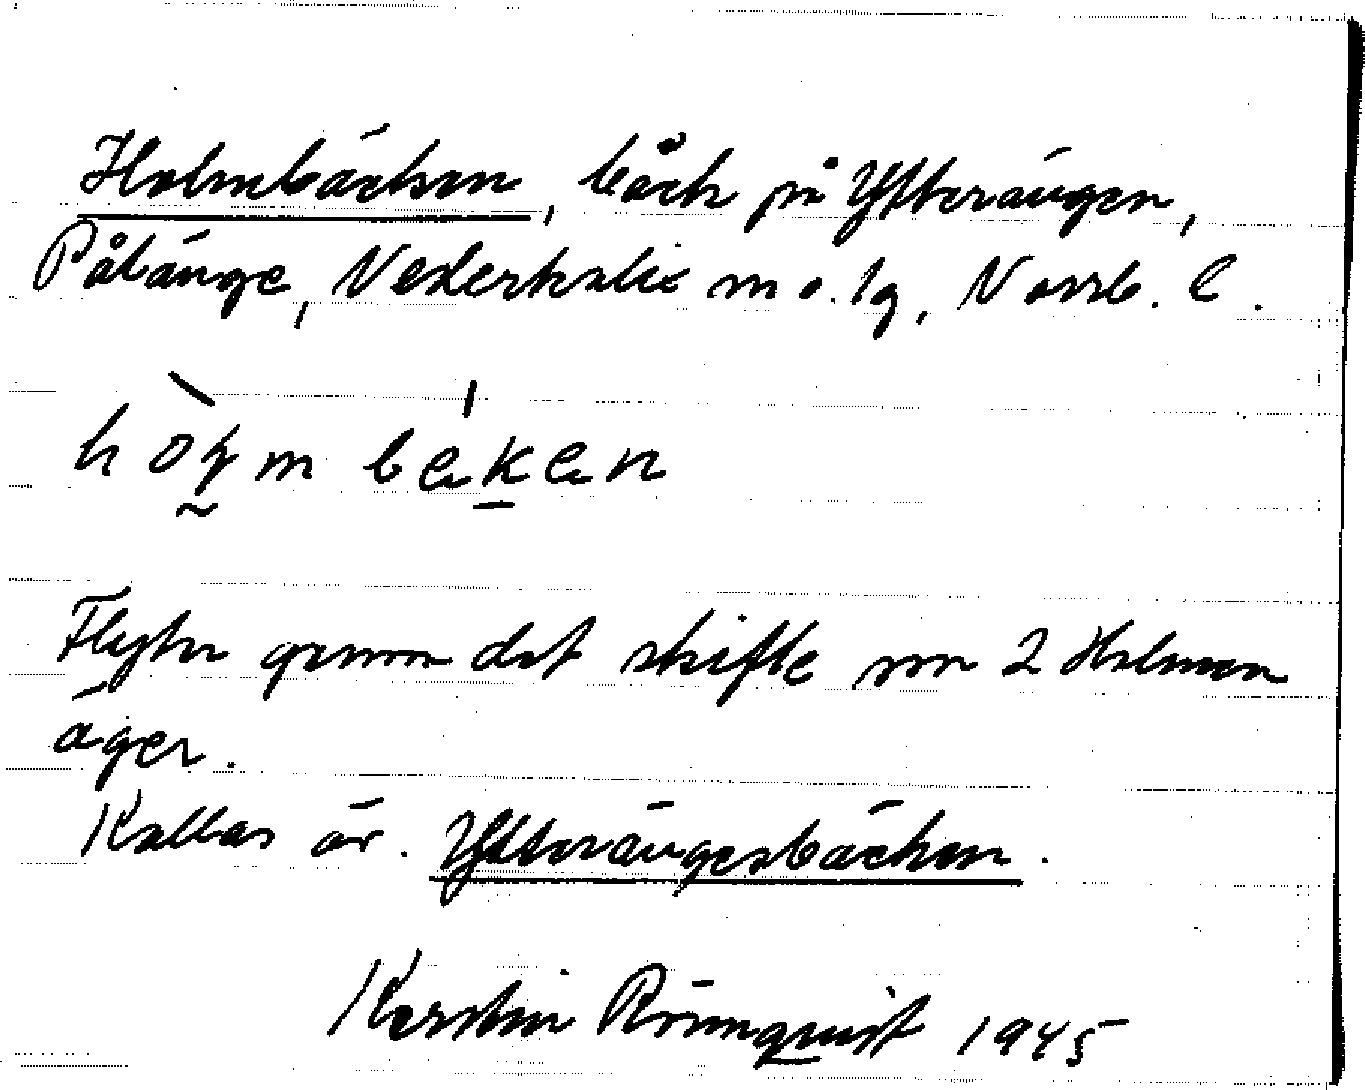 Holmbäcken, bäck på Ytterängen,
Pålänge, Nederkalix m o. lg, Norrb. l.
Flyter genom det skifte som 2 Holmen
äger.
Kallas äv. Ytterängesbäcken.
Kerstin Rönnquist 1945